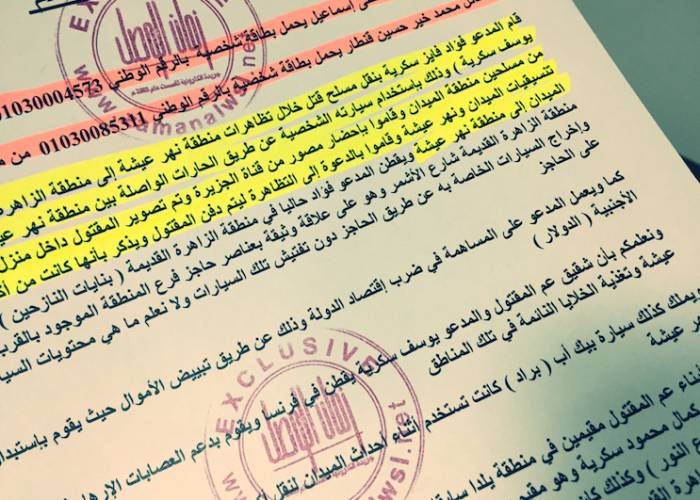 إسماعيل يحمل بطاقة شخصية بالرقم الوطني 01030004573
محمد خير حسين قنطار يحمل بطاقة شخصية بالرقم الوطني 01030085311 من
قام المدعو فواد فايز سكرية بنقل مسلح قتل خلال تظاهرات منطقة نهر عيشة إلى منطقة الزاهرة
يوسف سكرية ) وذلك بإستخدام سيارته الشخصية عن طريق الحارات الواصلة بين منطقة نهر
من مسلحين منطقة الميدان وقاموا بإحضار مصور من قناة الجزيرة وتم تصوير المقتول داخل منزل
تنسيقيات الميدان ونهر عيشة وقاموا بالدعوة إلى التظاهرة ليتم دفن المقتول ويذكر بأنها كانت من
الميدان إلى منطقة نهر عيشة ويقطن المدعو فؤاد حاليا في منطقة الزاهرة القديمة ( بنايات النازحين )
منطقة الزاهرة القديمة شارع الأشمر وهو على علاقة وثيقة بعناصر حاجز فرع المنطقة الموجود بالقرب
وإخراج السيارات الخاصة به عن طريق الحاجز دون تفتيش تلك السيارات ولا نعلم ما هي محتويات
على الحاجز
كما ويعمل المدعو على المساهمة في ضرب إقتصاد الدولة وذلك عن طريق تبييض الأموال حيث يقوم
الأجنبية ( الدولار )
ونعلمكم بأن شقيق عم المقتول والمدعو يوسف سكرية يقطن في فرنسا ويقوم بدعم العصابات
عيشة وتغذية الخلايا النائمة في تلك المناطق
ويملك كذلك سيارة بيك أب ( براد ) كانت تستخدم أثناء أحداث الميدان لنقل
عيشة
أبناء عم المقتول مقيمين في منطقة يلدا
جمال محمود سكرية وهو
النور ) وكذلك
EXCLUSIVE
زمان الوصل
EXCLUSIVE
زمان الوصل